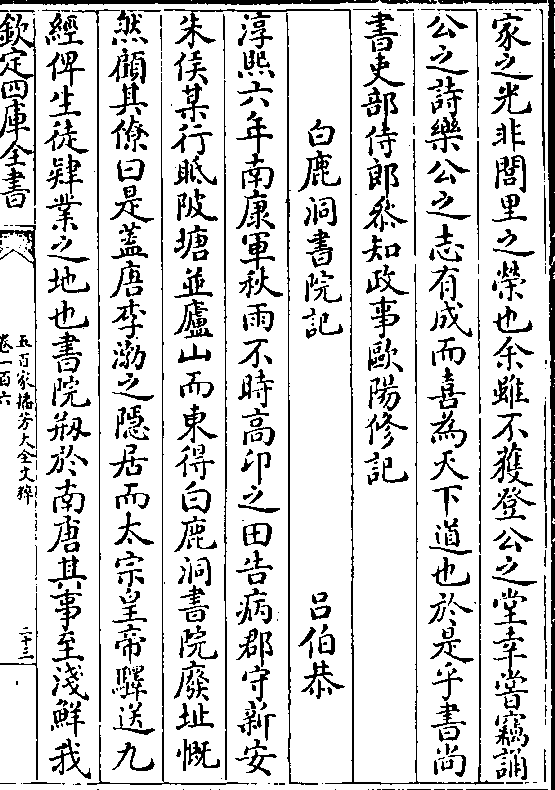 家之光非閭里之榮也余雖不獲登公之堂幸嘗竊誦
公之詩樂公之志有成而喜為天下道也於是乎書尚
書吏部侍郎叅知政事歐陽修記
白鹿洞書院記 吕伯恭
淳熙六年南康軍秋雨不時高卬之田告病郡守新安
朱侯某行眡陂塘並廬山而東得白鹿洞書院廢址慨
然顧其僚曰是蓋唐李渤之隱居而太宗皇帝驛送九
經俾生徒肄業之地也書院剏於南唐其事至淺鮮我
欽定四庫全書
五百家播芳大全文粹
卷一百六
二十三